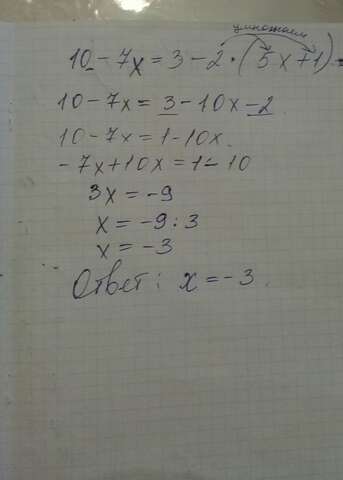 умножаем
10-7x=3-2·(5x+1)=
10-7x=3-10x-2
10-7x=1-10x.
-7x+10x=1-10
3x=-9
x=-9:3
x=-3
Ответ: x=-3.